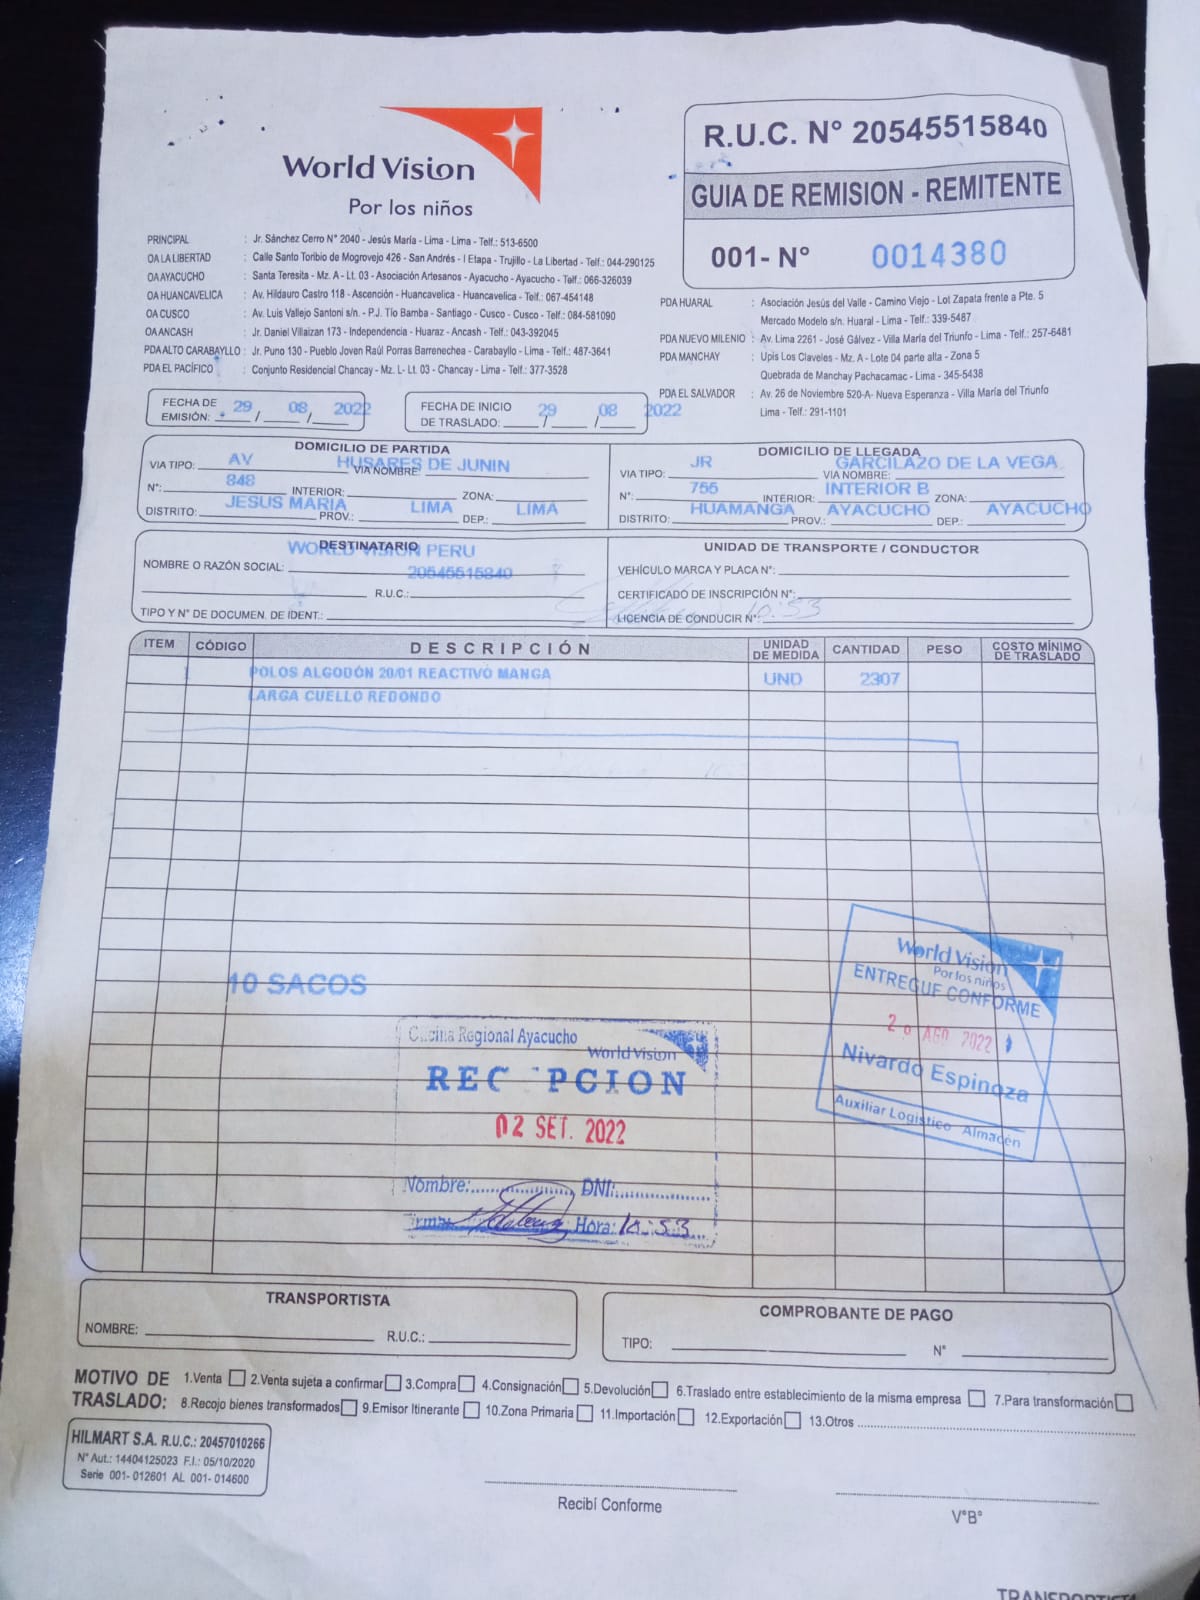 World Vision
Por los niños
R.U.C. N° 20545515840
GUIA DE REMISION - REMITENTE
001- N° 0014380
PRINCIPAL : Jr. Sánchez Cerro N° 2040 - Jesús María - Lima - Lima - Telf.: 513-6500
OA LA LIBERTAD : Calle Santo Toribio de Mogrovejo 426 - San Andrés - I Etapa - Trujillo - La Libertad - Telf.: 044-290125
OA AYACUCHO : Santa Teresita - Mz. A - Lt. 03 - Asociación Artesanos - Ayacucho - Ayacucho - Telf.: 066-326039
OA HUANCAVELICA : Av. Hildauro Castro 118 - Ascención - Huancavelica - Huancavelica - Telf.: 067-454148
OA CUSCO : Av. Luis Vallejo Santoni s/n. - P.J. Tío Bamba - Santiago - Cusco - Cusco - Telf.: 084-581090
OA ANCASH : Jr. Daniel Villaizan 173 - Independencia - Huaraz - Ancash - Telf.: 043-392045
PDA ALTO CARABAYLLO : Jr. Puno 130 - Pueblo Joven Raúl Porras Barrenechea - Carabayllo - Lima - Telf.: 487-3641
PDA EL PACÍFICO : Conjunto Residencial Chancay - Mz. L- Lt. 03 - Chancay - Lima - Telf.: 377-3528
PDA HUARAL : Asociación Jesús del Valle - Camino Viejo - Lol Zapata frente a Pte. 5
Mercado Modelo s/n. Huaral - Lima - Telf.: 339-5487
PDA NUEVO MILENIO : Av. Lima 2261 - José Gálvez - Villa María del Triunfo - Lima - Telf.: 257-6481
PDA MANCHAY : Upis Los Claveles - Mz. A - Lote 04 parte alta - Zona 5
Quebrada de Manchay Pachacamac - Lima - 345-5438
PDA EL SALVADOR : Av. 26 de Noviembre 520-A- Nueva Esperanza - Villa María del Triunfo
Lima - Telf.: 291-1101
FECHA DE EMISIÓN: 29 / 08 / 2022
FECHA DE INICIO DE TRASLADO: 29 / 08 / 2022
DOMICILIO DE PARTIDA
VIA TIPO: AV VIA NOMBRE: HUSARES DE JUNIN
N°: 848 INTERIOR: ZONA:
DISTRITO: JESUS MARIA PROV.: LIMA DEP.: LIMA
DOMICILIO DE LLEGADA
VIA TIPO: JR VIA NOMBRE: GARCILAZO DE LA VEGA
N°: 755 INTERIOR: INTERIOR B ZONA:
DISTRITO: HUAMANGA PROV.: AYACUCHO DEP.: AYACUCHO
DESTINATARIO
NOMBRE O RAZÓN SOCIAL: WORLD VISION PERU
R.U.C.: 20545515840
TIPO Y N° DE DOCUMEN. DE IDENT.:
UNIDAD DE TRANSPORTE / CONDUCTOR
VEHÍCULO MARCA Y PLACA N°:
CERTIFICADO DE INSCRIPCIÓN N°:
LICENCIA DE CONDUCIR N°: 10:53
ITEM CÓDIGO DESCRIPCIÓN UNIDAD DE MEDIDA CANTIDAD PESO COSTO MÍNIMO DE TRASLADO
1 POLOS ALGODÓN 20/01 REACTIVO MANGA UND 2307
LARGA CUELLO REDONDO
10 SACOS
World Vision
Por los niños
ENTREGUE CONFORME
29 AGO 2022
Nivardo Espinoza
Auxiliar Logístico Almacén
Oficina Regional Ayacucho
World Vision
RECEPCION
02 SET. 2022
Nombre: DNI:
Firma: Hora: 10:53
TRANSPORTISTA
NOMBRE: R.U.C.:
COMPROBANTE DE PAGO
TIPO: N°
MOTIVO DE TRASLADO: 1.Venta 2.Venta sujeta a confirmar 3.Compra 4.Consignación 5.Devolución 6.Traslado entre establecimiento de la misma empresa 7.Para transformación
8.Recojo bienes transformados 9.Emisor Itinerante 10.Zona Primaria 11.Importación 12.Exportación 13.Otros
HILMART S.A. R.U.C.: 20457010266
N° Aut.: 14404125023 F.I.: 05/10/2020
Serie 001- 012601 AL 001- 014600
Recibí Conforme
V°B°
TRANSPORTISTA